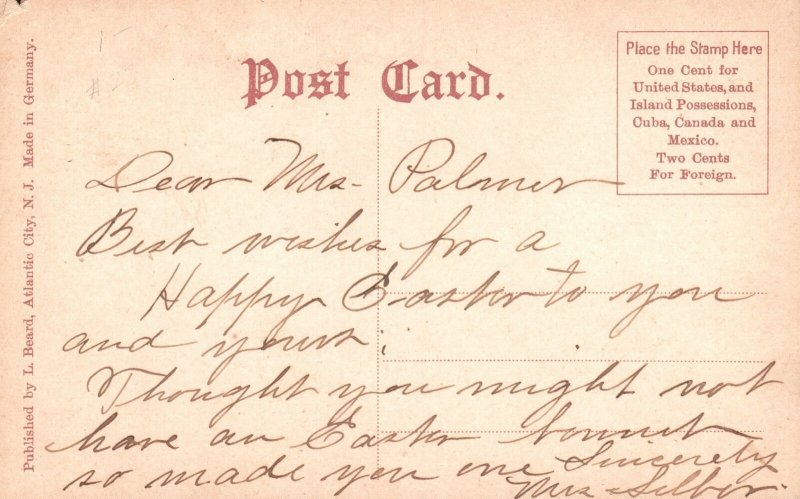 Published by L. Beard, Atlantic City, N. J. Made in Germany.
Post Card.
Place the Stamp Here
One Cent for
United States, and
Island Possessions,
Cuba, Canada and
Mexico.
Two Cents
For Foreign.
Dear Mrs- Palmer
Best wishes for a
Happy Easter to you
and yours;
Thought you might not
have an Easter bonnet
so made you one Sincerely
Mrs-